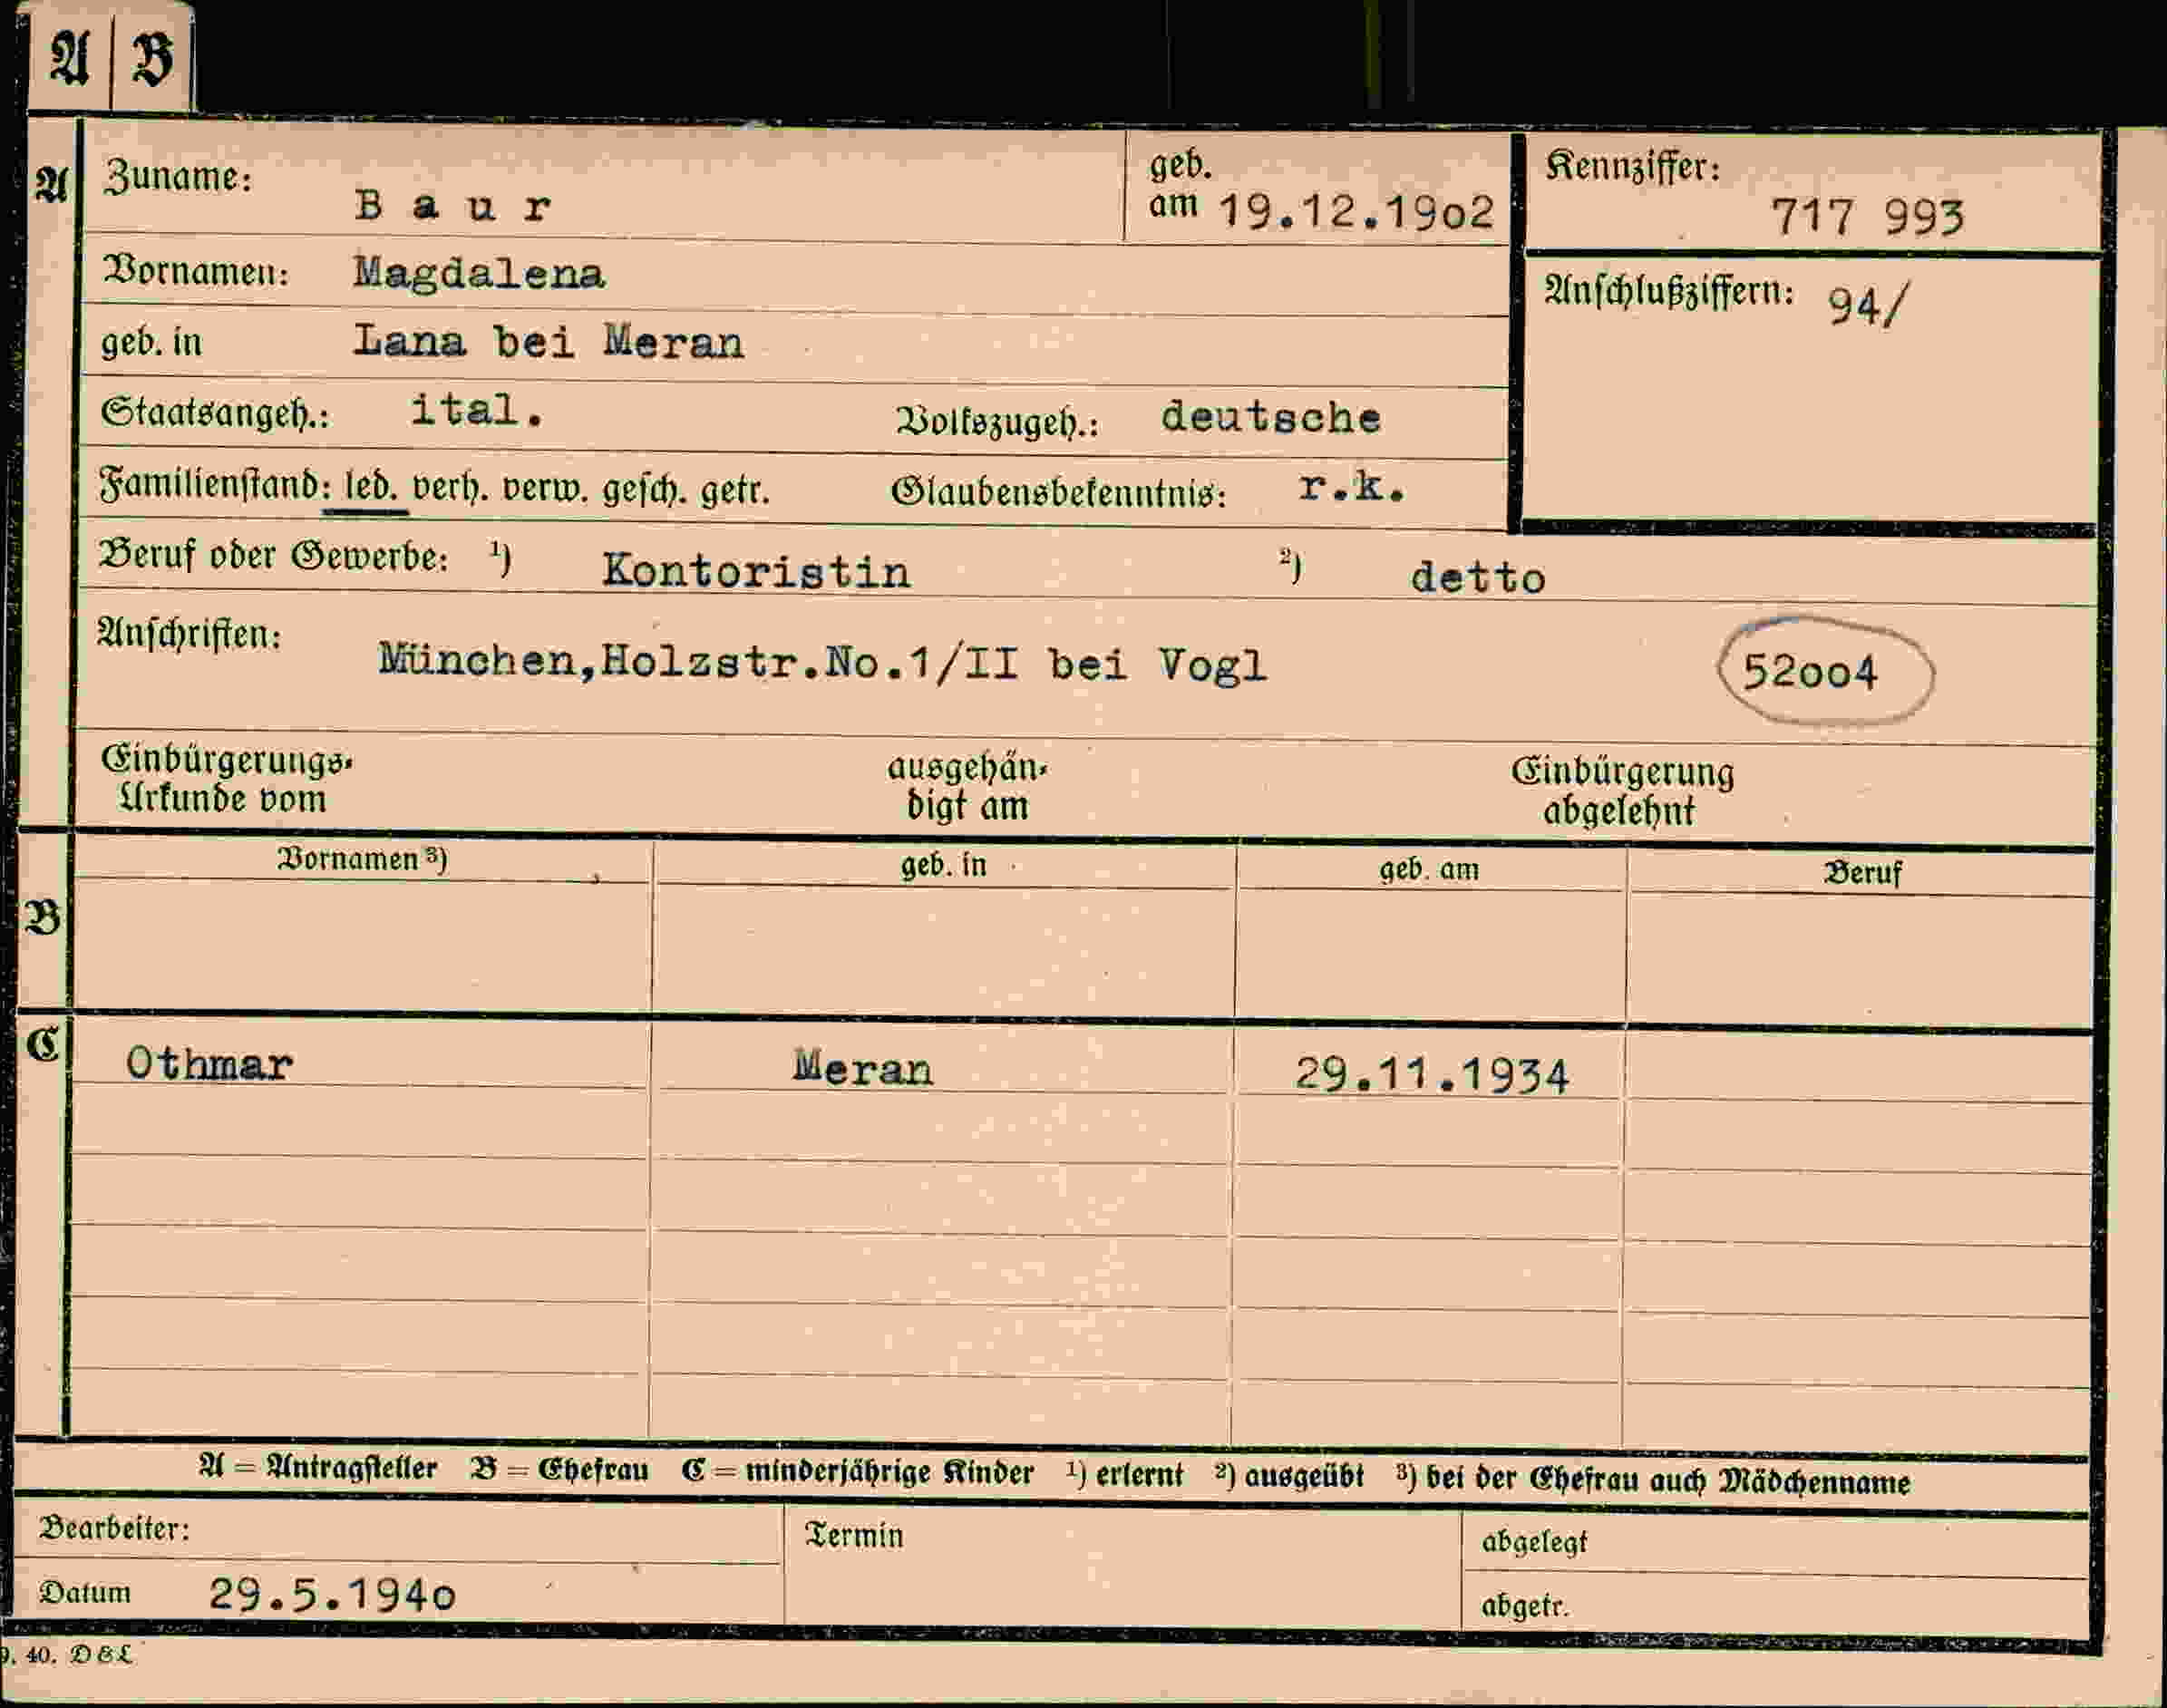 A B
A Zuname: Baur geb. am 19.12.19o2 Kennziffer: 717 993
Vornamen: Magdalena Anschlußziffern: 94/
geb. in Lana bei Meran
Staatsangeh.: ital. Volkszugeh.: deutsche
Familienstand: led. verh. verw. gesch. getr. Glaubensbekenntnis: r.k.
Beruf oder Gewerbe: ¹) Kontoristin ²) detto
Anschriften: München,Holzstr.No.1/II bei Vogl 52oo4
Einbürgerungs- ausgehän- Einbürgerung
Urkunde vom digt am abgelehnt
Vornamen ³) geb. in geb. am Beruf
B
C Othmar Meran 29.11.1934
A = Antragsteller B = Ehefrau C = minderjährige Kinder ¹) erlernt ²) ausgeübt ³) bei der Ehefrau auch Mädchenname
Bearbeiter: Termin abgelegt
Datum 29.5.194o abgetr.
40. D&L